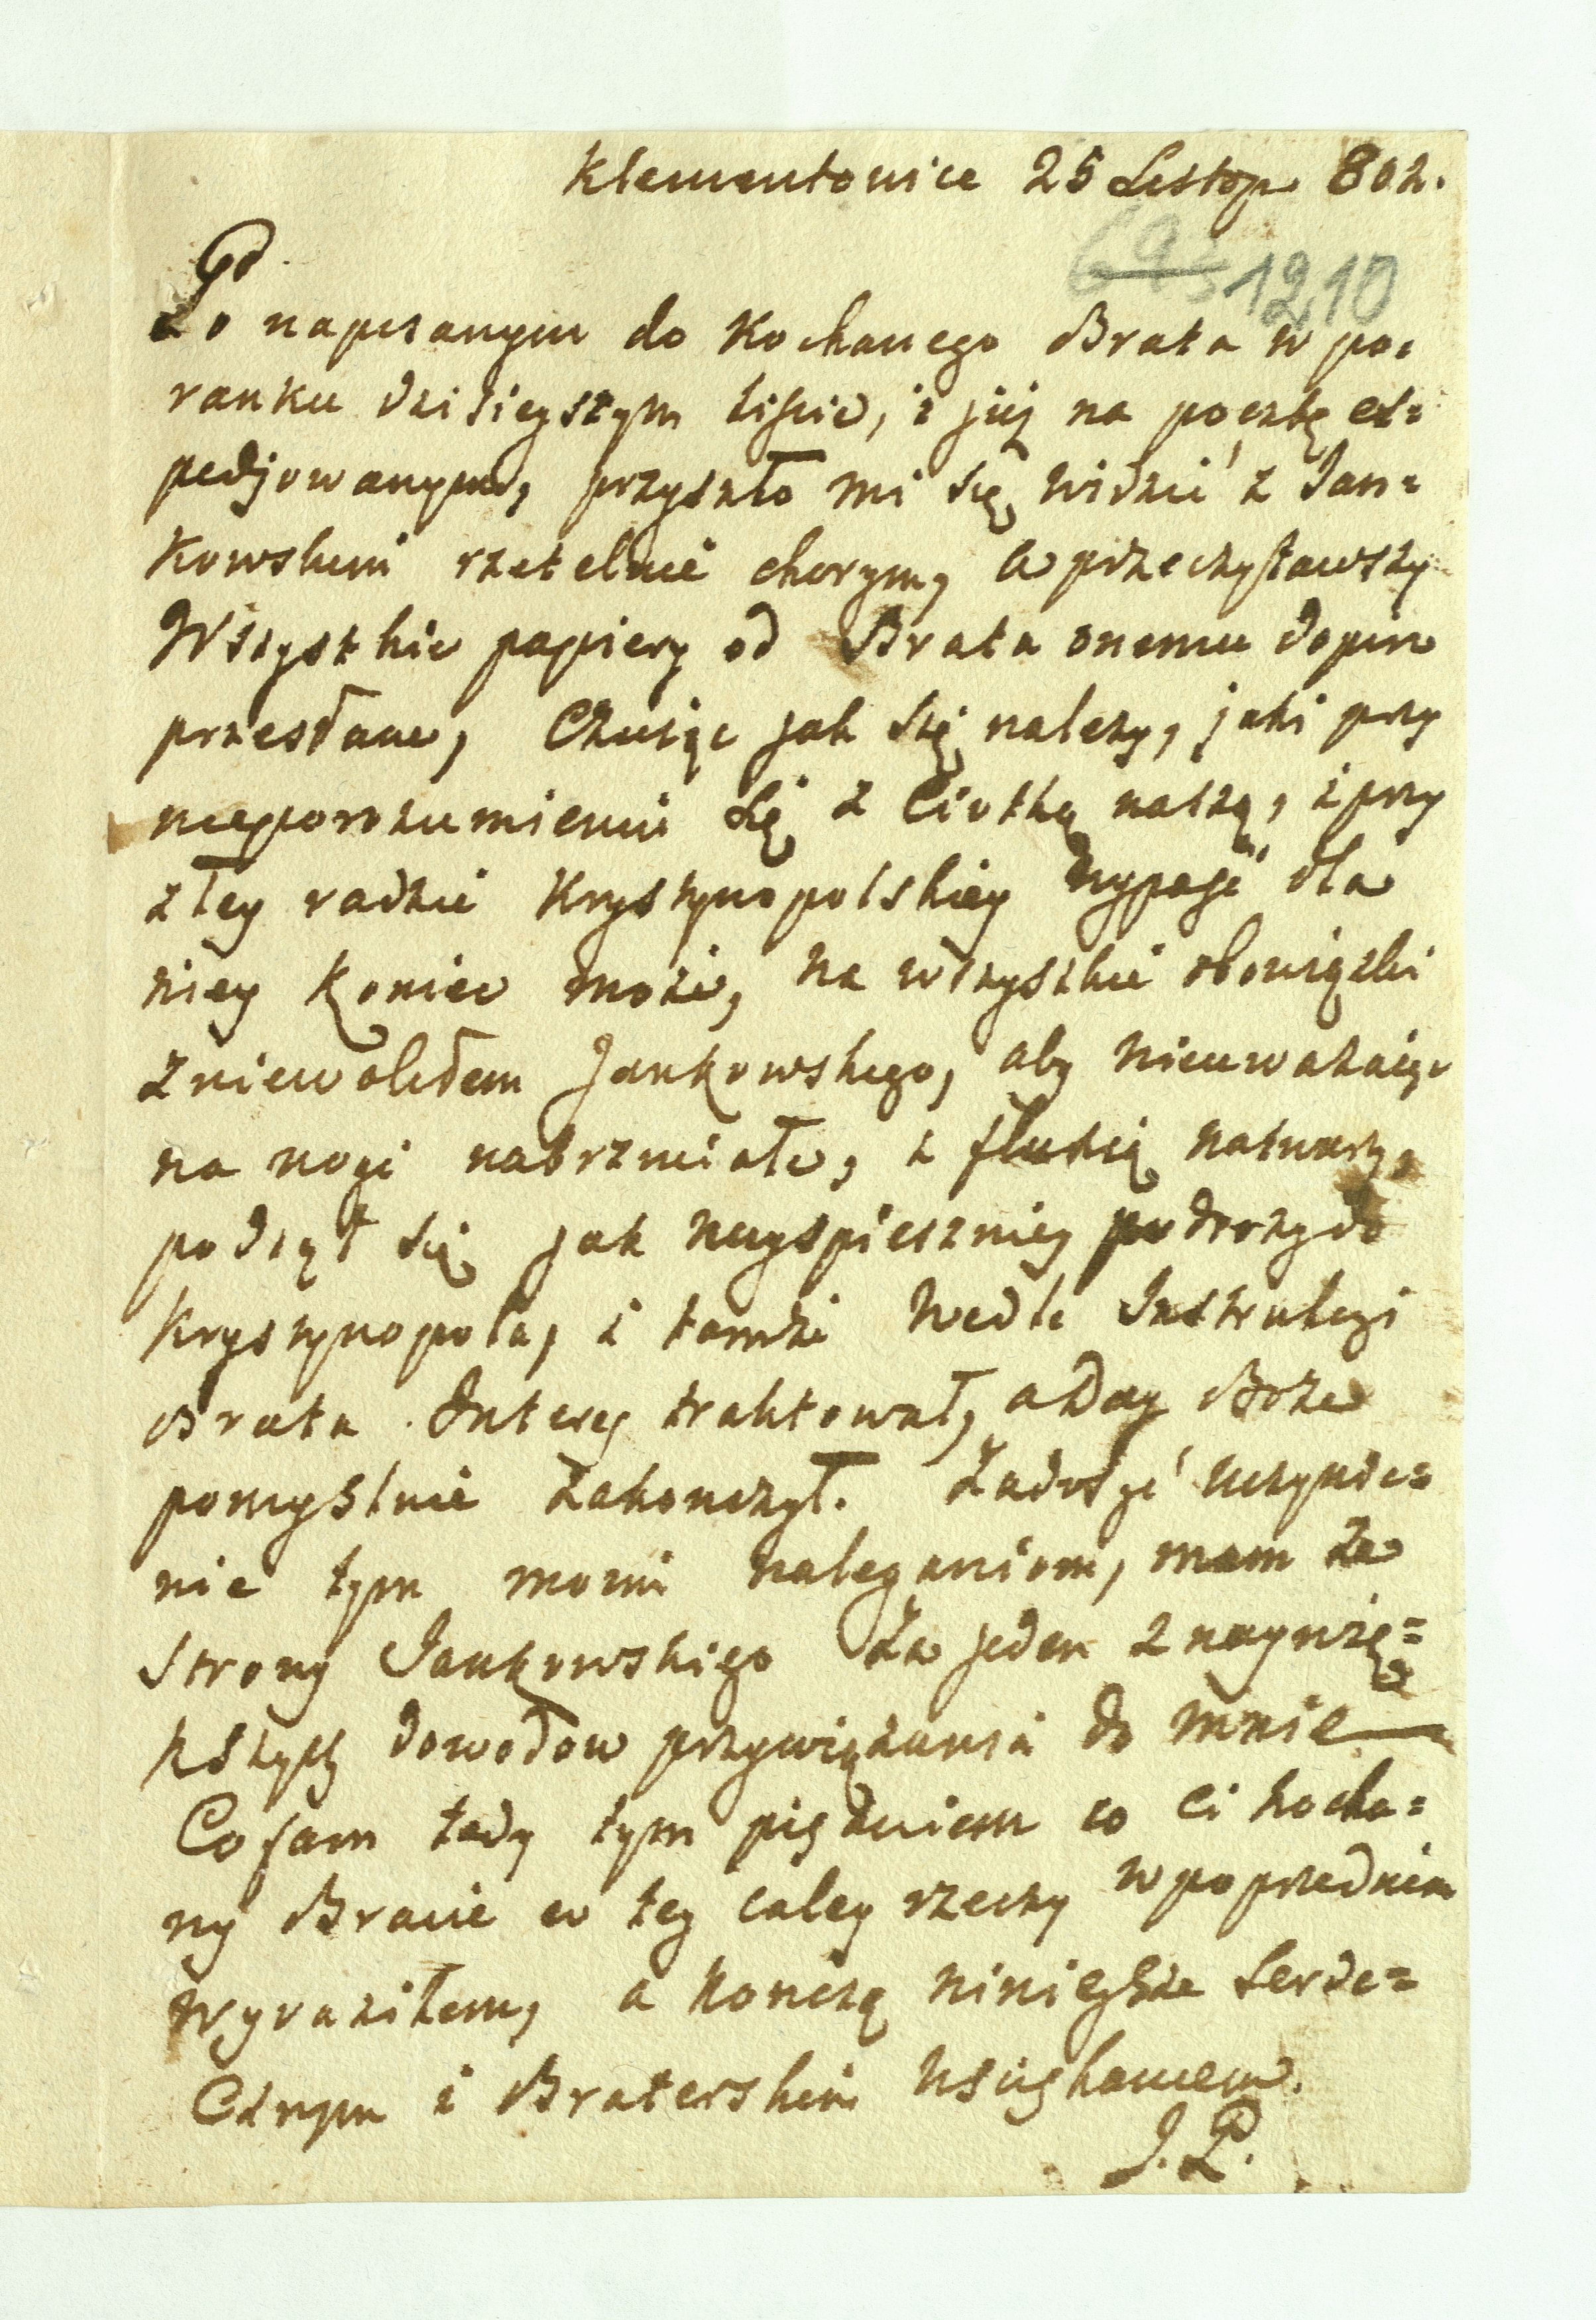 Klementowice 25 Listop 802.
693 1210
Po napisanym do Kochanego Brata w po=
ranku dzisieyszym liście, i już na pocztę ex=
pedjowanym, przyszło mi się widzić z Jan=
kowskim rzetelnie chorym, a przeczytawszy
Wszystkie papiery od Brata onemu dopiro
przesłane, Czuiąc jak się należy, jaki przy
nieporozumieniu się z Ciotką naszą, i przy
złey radzie Krystynopolskiey wypaść dla
niey koniec może, na wszystkie obowiązki
zniewoliłem Jankowskiego, aby nieuważaiąc
na nogi nabrzmiałe, z fluxią natury,
podiął się jak nayspieszniey podroży do
Krystynopola, i tamże wedle Instrukcyi
Brata Interes traktował, a Day Boże
pomyślnie zakonczył. Zadosyć uczynie=
nie tym moim naleganiom, mam ze
strony Jankowskiego za jeden z naywię=
kszych dowodow przywiązania do mnie
Cofam tedy tym pismem co Ci kocha=
ny Bracie w tey całey rzeczy w poprzednim
wyraziłem, a konczę ninieysze Serde=
Cznym i Braterskim uściskaniem.
J. P.